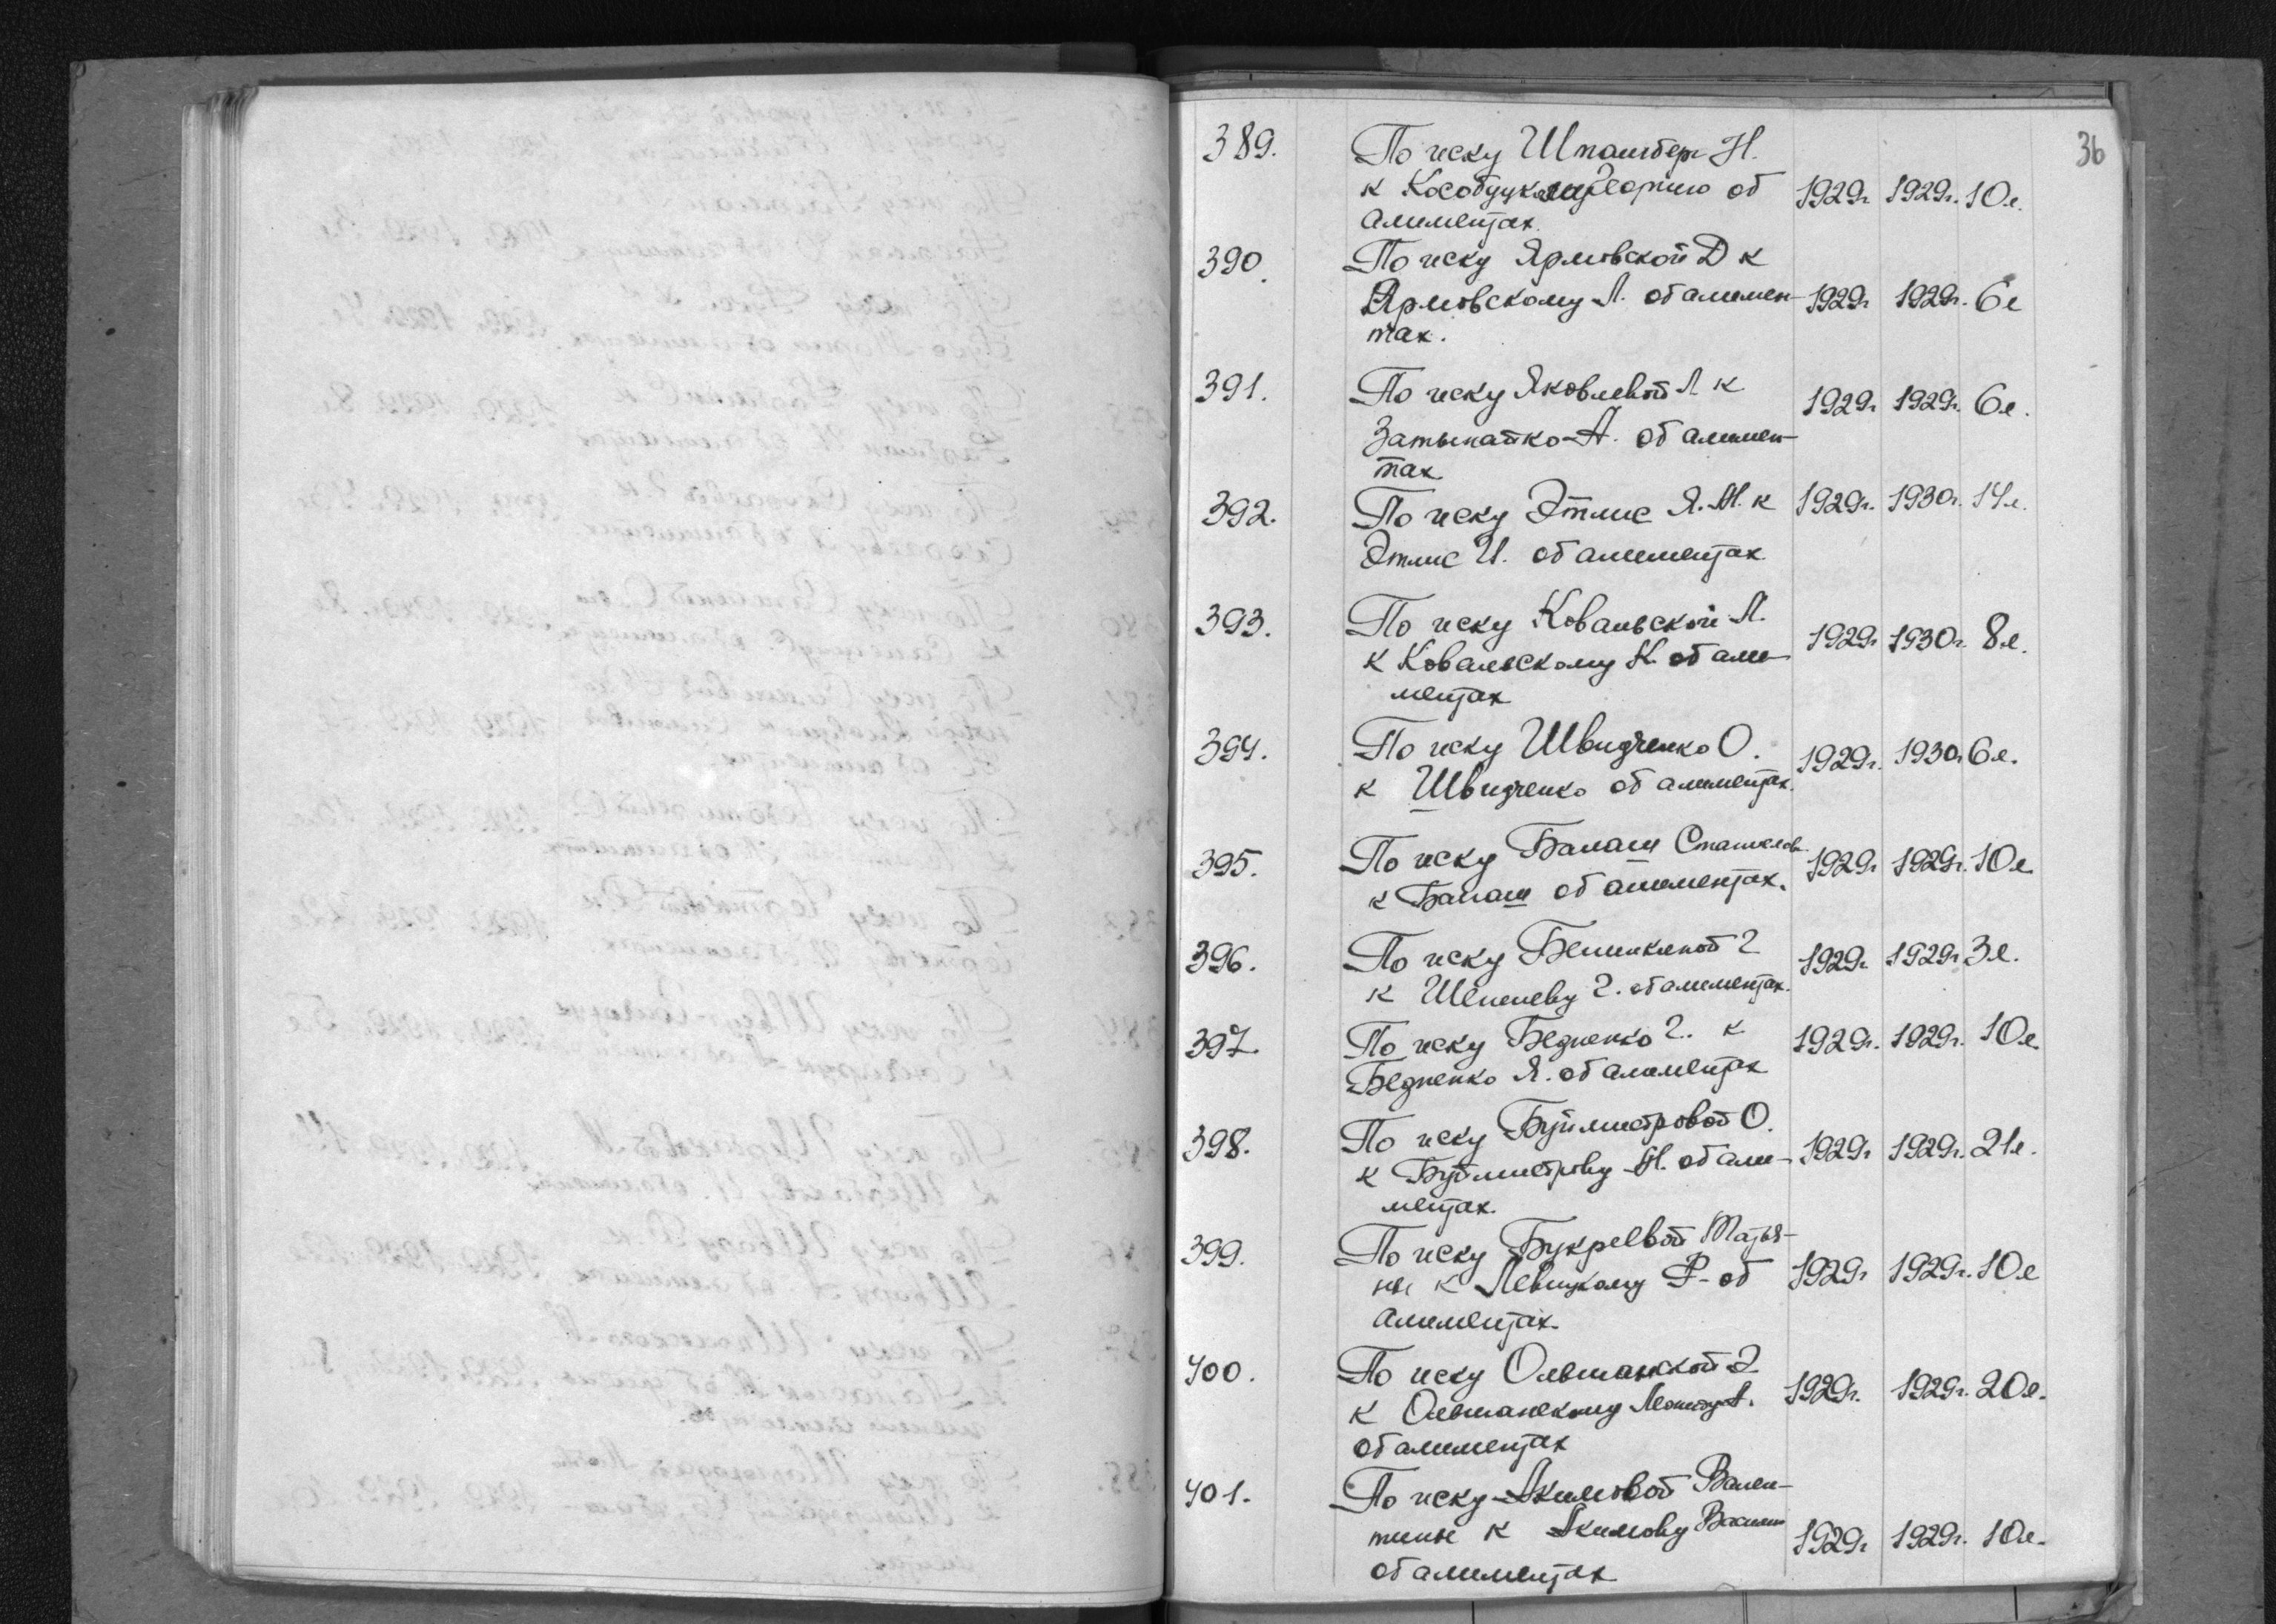 36
389. По иску Шпамберг Н.
к Кособуцкому Георгию об 1929г. 1929г. 10л.
алиментах.
390. По иску Ярмовской Д к
Ярмовскому Л. об алимен- 1929г 1929г. 6л
тах.
391. По иску Яковлевой Л к
1929г. 1929г. 6л.
А. об алимен-
тах
392. По иску Этлис Я.М. к 1929г. 1930г. 14л.
Этлис И. об алиментах
393. По иску Ковальской Л.
к Ковальскому К. об али- 1929г 1930г. 8л.
ментах
394. По иску Швидченко О. 1929г. 1930г 6л.
к Швидченко об алиментах.
395. По иску Балаш 1929г 1929г. 10л
к Балаш об алиментах.
396. По иску Г 1929г. 1929г 3л.
к Шепелеву Г. об алиментах.
397. По иску Бедненко Г. к 1929г. 1929г. 10л.
Бедненко Я. об алиментах
398. По иску Буймистровой О.
к Буймистрову Н. об али- 1929г 1929г. 21л.
ментах.
399. По иску Букреевой Татья-
не к Левицкому Ф. об 1929г 1929г. 10л
алиментах.
400. По иску Ольшанской Э
к Ольшанскому Леониду А. 1929г. 1929г. 20л.
об алиментах
401. По иску Акимовой Вален-
тине к Акимову Василию 1929г 1929г. 10л.
об алиментах